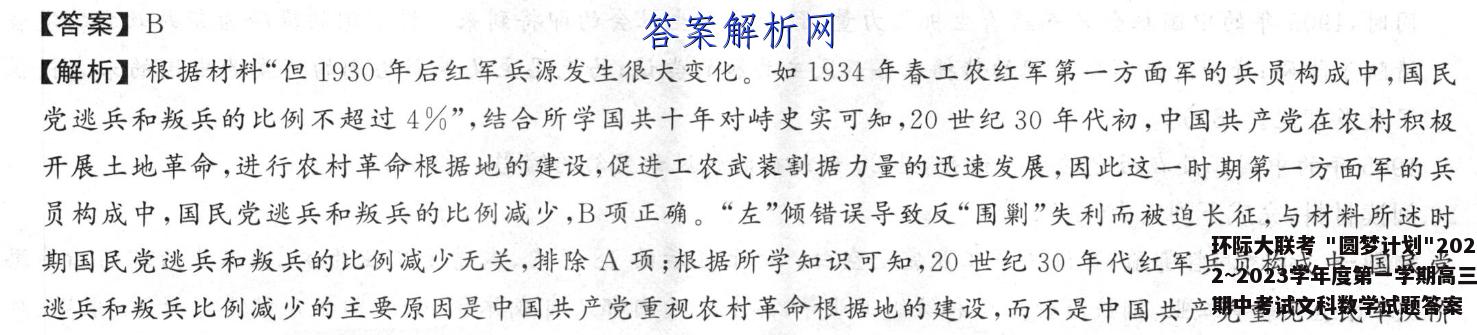 【答案】B
答案解析网
【解析】根据材料“但1930年后红军兵源发生很大变化。如1934年春工农红军第一方面军的兵员构成中,国民
党逃兵和叛兵的比例不超过4%”,结合所学国共十年对峙史实可知,20世纪30年代初,中国共产党在农村积极
开展土地革命,进行农村革命根据地的建设,促进工农武装割据力量的迅速发展,因此这一时期第一方面军的兵
员构成中,国民党逃兵和叛兵的比例减少,B项正确。“左”倾错误导致反“围剿”失利而被迫长征,与材料所述时
期国民党逃兵和叛兵的比例减少无关,排除A项;根据所学知识可知,20世纪30年代红军兵员构成中,国民党
逃兵和叛兵比例减少的主要原因是中国共产党重视农村革命根据地的建设,而不是中国共产党重视人民军队
环际大联考 "圆梦计划"202
2~2023学年度第一学期高三
期中考试文科数学试题答案